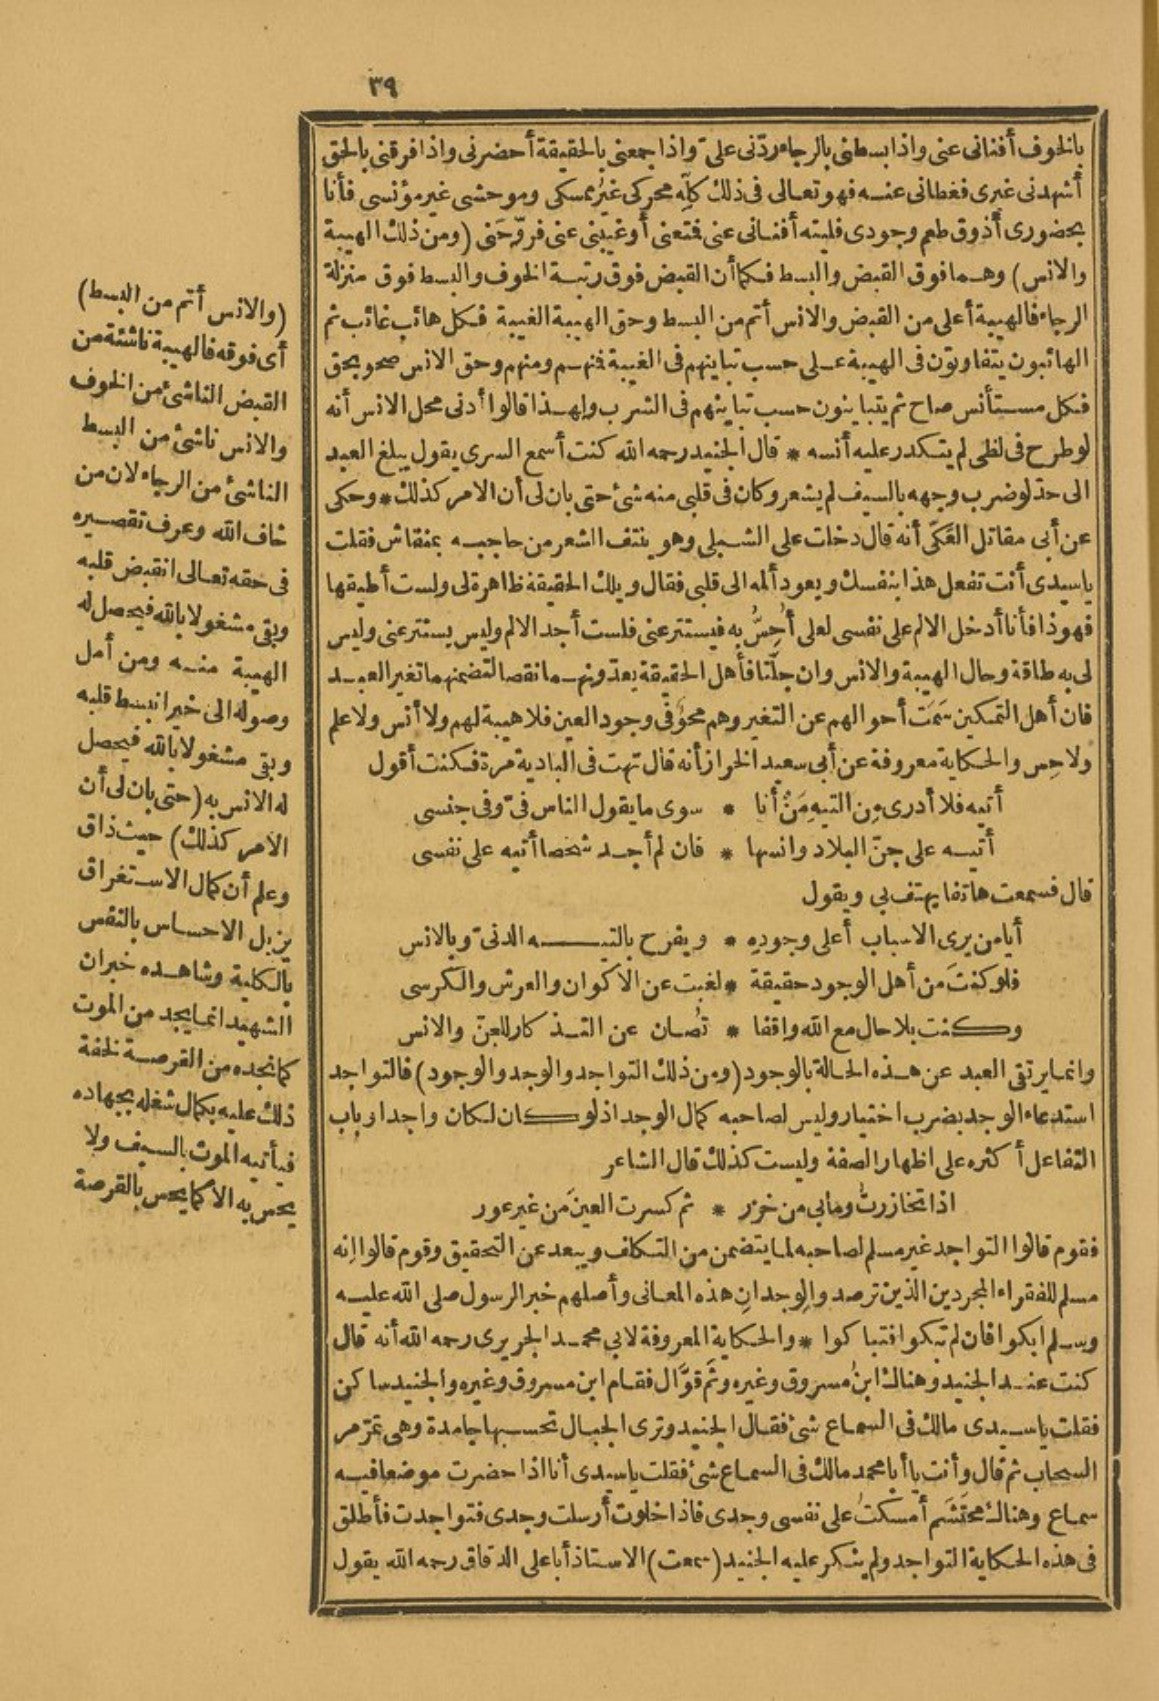 ٣٩
بالخوف أفنانى عنى واذا بسطنى بالرجاء ردّنى علىّ واذا جمعنى بالحقيقة أحضرنى واذا فرقنى بالحق
أشهدنى غيرى فغطانى عنه فهو تعالى فى ذلك كلِّه محركى غيرُ ممسكى وموحشى غير مؤنسى فأنا
بحضورى أذوق طعم وجودى فليته أفنانى عنى فمتعنى أو غيبنى عنى فروَّحَنى (ومن ذلك الهيبة
والانس) وهما فوق القبض والبسط فكما أن القبض فوق رتبة الخوف والبسط فوق منزلة
الرجاء فالهيبة أعلى من القبض والانس أتم من البسط وحق الهيبة الغيبة فكل هائب غائب ثم
الهائبون يتفاوتون فى الهيبة على حسب تباينهم فى الغيبة فمنهم ومنهم وحق الانس صحو بحق
فكل مستأنس صاح ثم يتباينون حسب تباينهم فى الشرب ولهذا قالوا أدنى محل الانس أنه
لو طرح فى لظى لم يتكدر عليه أنسه * قال الجنيد رحمه الله كنت أسمع السرى يقول يبلغ العبد
الى حد لو ضرب وجهه بالسيف لم يشعر وكان فى قلبى منه شئ حتى بان لى أن الامر كذلك * وحكى
عن أبى مقاتل العَكّى أنه قال دخلت على الشبلى وهو ينتف الشعر من حاجبه بمنقاش فقلت
ياسيدى أنت تفعل هذا بنفسك ويعود ألمه الى قلبى فقال ويلك الحقيقة ظاهرة لى ولست أطيقها
فهوذا فأنا أدخل الالم على نفسى لعلى أُحِسُّ به فيستتر عنى فلست أجد الالم وليس يستتر عنى وليس
لى به طاقة وحال الهيبة والانس وان جلّتا فأهل الحقيقة يعدّونهما نقصا لتضمنهما تغير العبد
فان أهل التمكين سَمَت أحوالهم عن التغير وهم محوٌ فى وجود العين فلا هيبة لهم ولا أنس ولا علم
ولا حِس والحكاية معروفة عن أبى سعيد الخراز أنه قال تهت فى البادية مرة فكنت أقول
أتيه فلا أدرى مِن التيهِ مَنْ أنا * سوى ما يقول الناس فىّ وفى جنسى
أتيه على جنّ البلاد وانسها * فان لم أجد شخصا أتيه على نفسى
قال فسمعت هاتفا يهتف بى ويقول
أيا من يرى الاسباب أعلى وجودهِ * ويفرح بالتيه الدنىّ وبالانس
فلو كنتَ من أهل الوجود حقيقة * لغبت عن الاكوان والعرش والكرسى
وكنت بلا حال مع الله واقفا * تُصان عن التذكار للجنّ والانس
وانما يرتقى العبد عن هذه الحالة بالوجود (ومن ذلك التواجد والوجد والوجود) فالتواجد
استدعاء الوجد بضرب اختيار وليس لصاحبه كمال الوجد اذ لو كان لكان واجدا وباب
التفاعل أكثره على اظهار الصفة وليست كذلك قال الشاعر
اذا تخازرتُ وما بى من خزر * ثم كسرت العينَ من غير عور
فقوم قالوا التواجد غير مسلم لصاحبه لما يتضمن من التكلف ويبعد عن التحقيق وقوم قالوا انه
مسلم للفقراء المجردين الذين ترصدوا لوجدانِ هذه المعانى وأصلهم خبر الرسول صلى الله عليه
وسلم ابكوا فان لم تبكوا فتباكوا * والحكاية المعروفة لابى محمد الجريرى رحمه الله أنه قال
كنت عند الجنيد وهناك ابنُ مسروق وغيره وثَم قوَّال فقام ابن مسروق وغيره والجنيد ساكن
فقلت ياسيدى مالك فى السماع شئ فقال الجنيد وترى الجبال تحسبها جامدة وهى تمرّ مر
السحاب ثم قال وأنت يا أبا محمد مالك فى السماع شئ فقلت ياسيدى أنا اذا حضرت موضعا فيه
سماع وهناك محتَشَم أمسكتُ على نفسى وجدى فاذا خلوت أرسلت وجدى فتواجدت فأطلق
فى هذه الحكاية التواجد ولم ينكر عليه الجنيد (سمعت) الاستاذ أبا على الدقاق رحمه الله يقول
(والانس أتم من البسط)
أى فوقه فالهيبة ناشئة من
القبض الناشئ من الخوف
والانس ناشئ من البسط
الناشئ من الرجاء لان من
خاف الله وعرف تقصيره
فى حقه تعالى انقبض قلبه
وبقى مشغولا بالله فيحصل له
الهيبة منه ومن أمل
وصوله الى خير انبسط قلبه
وبقى مشغولا بالله فيحصل
له الانس به (حتى بان لى أن
الامر كذلك) حيث ذاق
وعلم أن كمال الاستغراق
يزيل الاحساس بالنفس
بالكلية وشاهده خبر ان
الشهيد انما يجد من الموت
كما نجده من القرصة لخفة
ذلك عليه بكمال شغله بجهاده
فيأتيه الموت بالسيف ولا
يحس به الا كما يحس بالقرصة